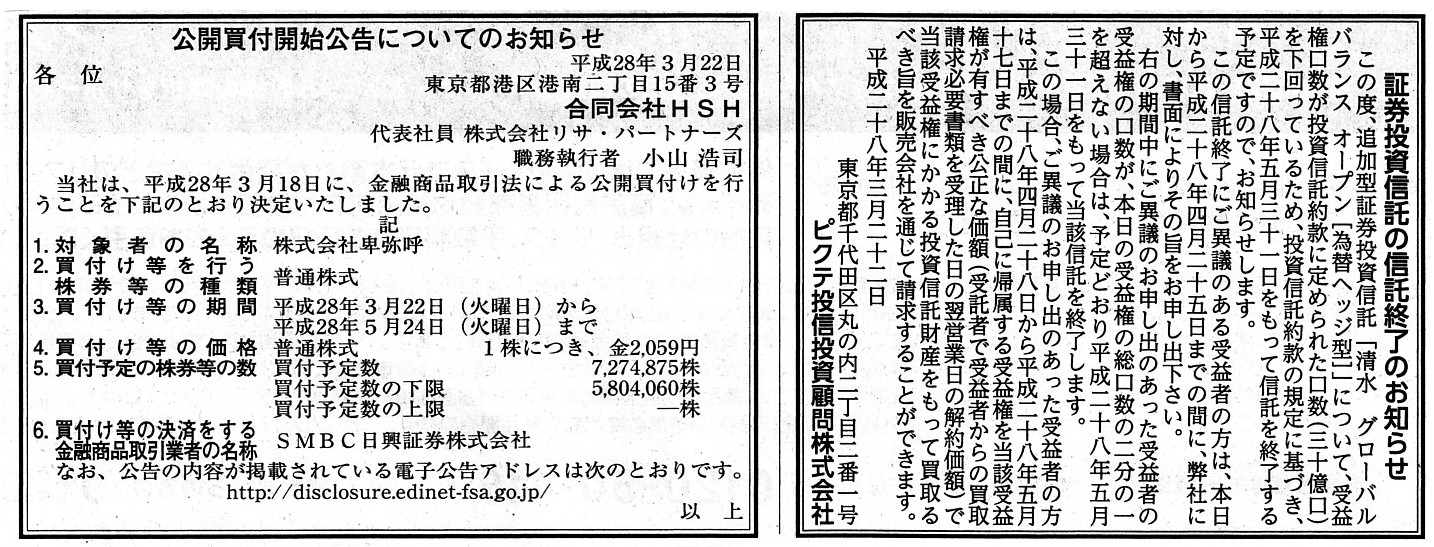 公開買付開始公告についてのお知らせ
平成28年3月22日
各 位
東京都港区港南二丁目15番3号
合同会社HSH
代表社員 株式会社リサ・パートナーズ
職務執行者 小山 浩司
当社は、平成28年3月18日に、金融商品取引法による公開買付けを行
うことを下記のとおり決定いたしました。
記
1. 対象者の名称 株式会社卑弥呼
2. 買付け等を行う
株券等の種類 普通株式
3. 買付け等の期間 平成28年3月22日（火曜日）から
平成28年5月24日（火曜日）まで
4. 買付け等の価格 普通株式 1株につき、金2,059円
5. 買付予定の株券等の数 買付予定数 7,274,875株
買付予定数の下限 5,804,060株
買付予定数の上限 ―株
6. 買付け等の決済をする
金融商品取引業者の名称 SMBC日興証券株式会社
なお、公告の内容が掲載されている電子公告アドレスは次のとおりです。
http://disclosure.edinet-fsa.go.jp/
以 上
証券投資信託の信託終了のお知らせ
この度、追加型証券投資信託「清水 グローバル
バランス オープン［為替ヘッジ型］」について、受益
権口数が投資信託約款に定められた口数（三十億口）
を下回っているため、投資信託約款の規定に基づき、
平成二十八年五月三十一日をもって信託を終了する
予定ですので、お知らせします。
この信託終了にご異議のある受益者の方は、本日
から平成二十八年四月二十五日までの間に、弊社に
対し、書面によりその旨をお申し出下さい。
右の期間中にご異議のお申し出のあった受益者の
受益権の口数が、本日の受益権の総口数の二分の一
を超えない場合は、予定どおり平成二十八年五月
三十一日をもって当該信託を終了します。
この場合、ご異議のお申し出のあった受益者の方
は、平成二十八年四月二十八日から平成二十八年五月
十七日までの間に、自己に帰属する受益権を当該受益
権が有すべき公正な価額（受託者で受益者からの買取
請求必要書類を受理した日の翌営業日の解約価額）で
当該受益権にかかる投資信託財産をもって買取る
べき旨を販売会社を通じて請求することができます。
平成二十八年三月二十二日
東京都千代田区丸の内二丁目二番一号
ピクテ投信投資顧問株式会社